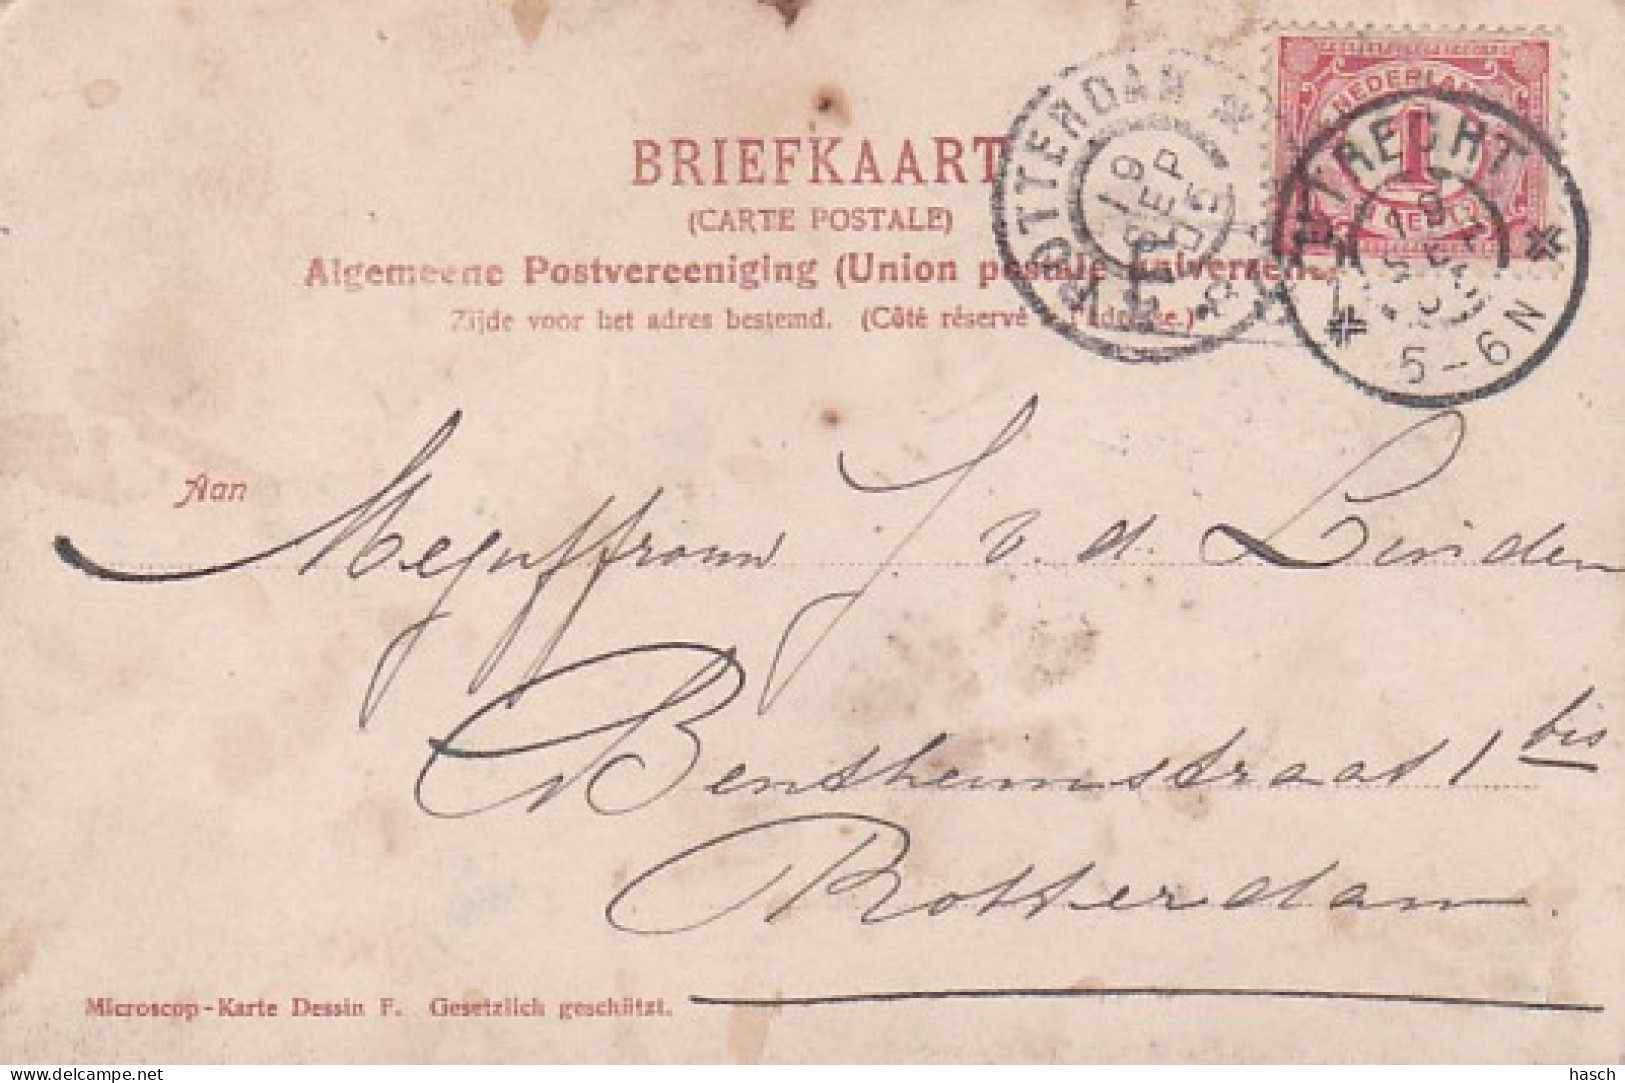 BRIEFKAART
(CARTE POSTALE)
Algemeene Postvereeniging (Union postale universelle)
Zijde voor het adres bestemd. (Côté réservé à l'adresse.)
ROTTERDAM
19
SEP
05
NEDERLAND
1
UTRECHT
19
5-6N
Aan
Mejuffrouw J. v. d. Linden
Benthemstraat 1 bis
Rotterdam.
Microscop-Karte Dessin F. Gesetzlich geschützt.
www.delcampe.net
hasch